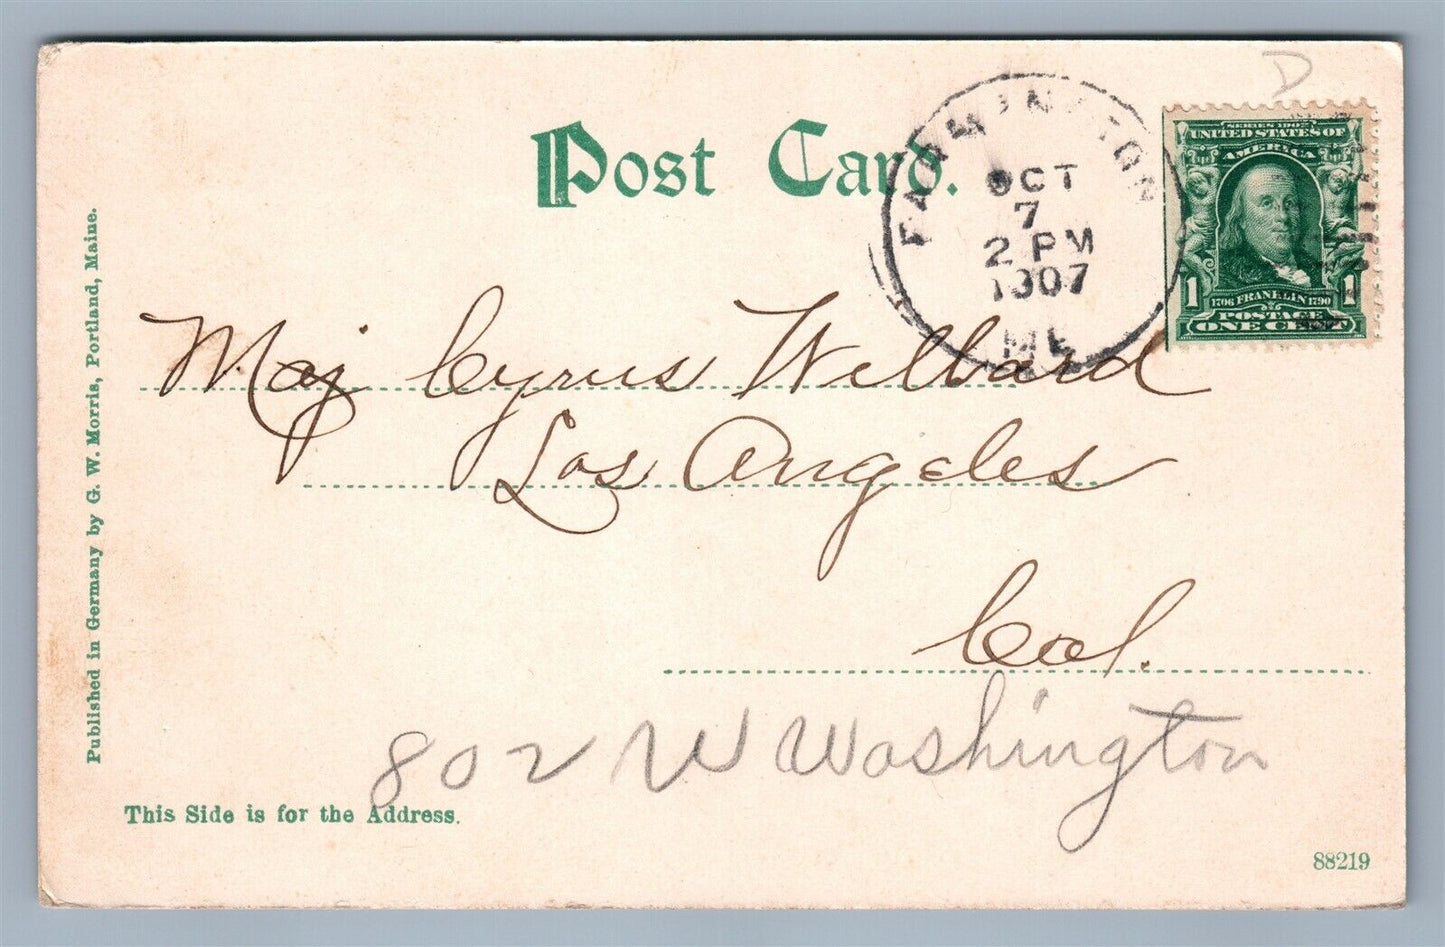 D
Post Card.
FARMINGTON
OCT
7
2 PM
1907
ME
SERIES 1902
UNITED STATES OF
AMERICA
1 1
1706 FRANKLIN 1790
POSTAGE
ONE CENT
Maj Cyrus Willard
Los Angeles
Cal.
802 W Washington
Published in Germany by G. W. Morris, Portland, Maine.
This Side is for the Address.
88219